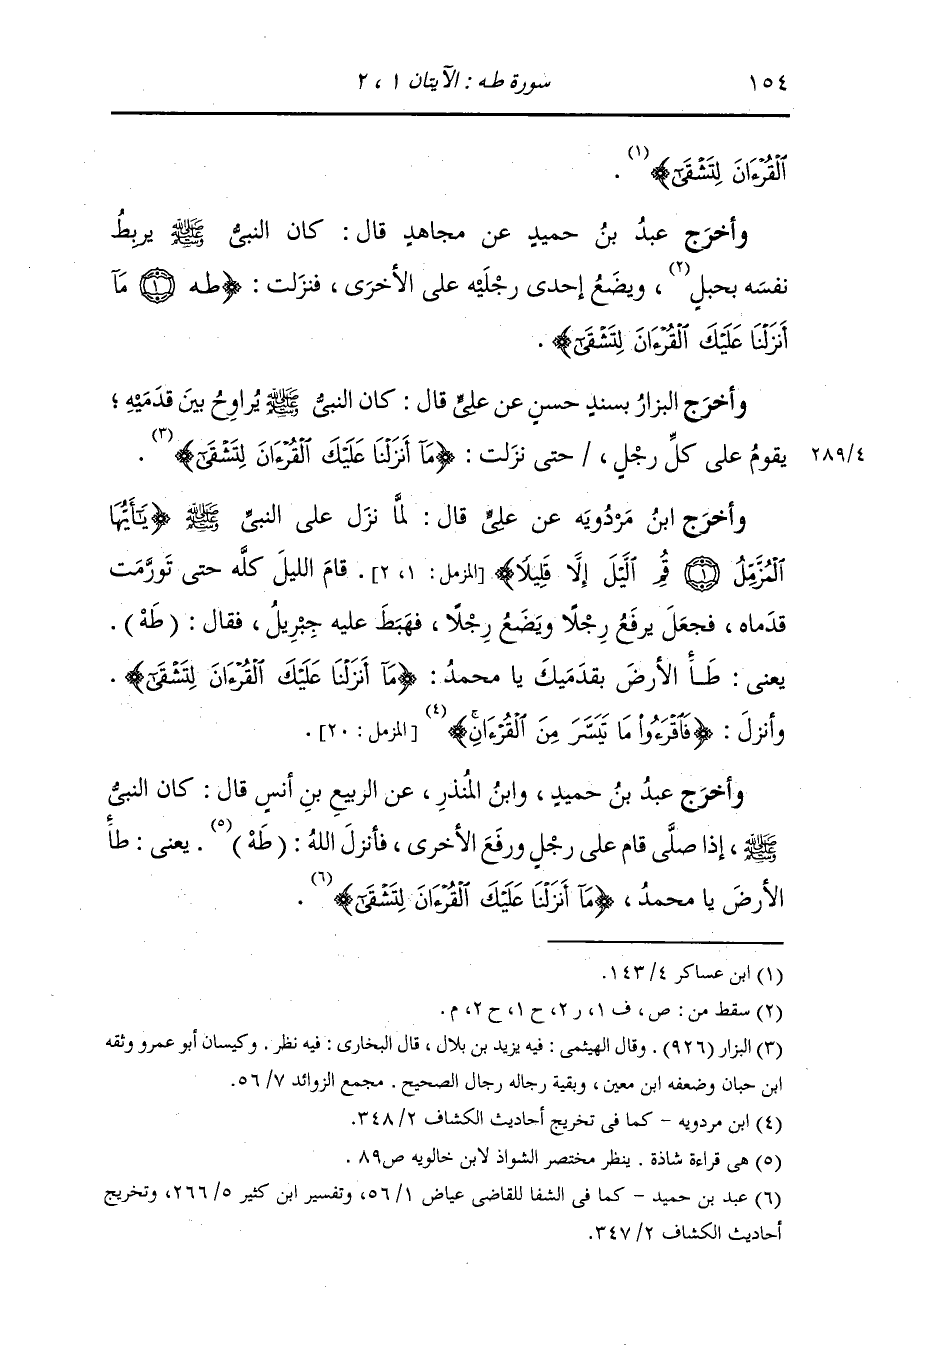 ١٥٤ سورة طه : الآيتان ١ ، ٢
ٱلۡقُرۡءَانَ لِتَشۡقَىٰٓ﴾(١) .
وأخرَج عبدُ بنُ حميدٍ عن مجاهدٍ قال : كان النبىُّ ﷺ يربِطُ
نفسَه بحبلٍ(٢) ، ويضَعُ إحدى رجْلَيْه على الأخرَى ، فنزَلت : ﴿طه ۝١ مَآ
أَنزَلۡنَا عَلَيۡكَ ٱلۡقُرۡءَانَ لِتَشۡقَىٰٓ﴾ .
وأخرَج البزارُ بسندٍ حسنٍ عن علىٍّ قال : كان النبىُّ ﷺ يُراوِحُ بينَ قدَمَيْهِ ؛
يقومُ على كلِّ رجْلٍ ، / حتى نزَلت : ﴿مَآ أَنزَلۡنَا عَلَيۡكَ ٱلۡقُرۡءَانَ لِتَشۡقَىٰٓ﴾(٣) . ٢٨٩/٤
وأخرَج ابنُ مَرْدُويَه عن علىٍّ قال : لمَّا نزَل على النبىِّ ﷺ ﴿يَٰٓأَيُّهَا
ٱلۡمُزَّمِّلُ ۝١ قُمِ ٱلَّيۡلَ إِلَّا قَلِيلٗا﴾ [المزمل : ١، ٢] . قامَ الليلَ كلَّه حتى تَورَّمَت
قدَماه ، فجعَلَ يرفَعُ رِجْلًا ويَضَعُ رِجْلًا ، فهَبَطَ عليه جِبْرِيلُ ، فقال : ( طَهْ ) .
يعنى : طَـأْ الأرضَ بقدَمَيكَ يا محمدُ : ﴿مَآ أَنزَلۡنَا عَلَيۡكَ ٱلۡقُرۡءَانَ لِتَشۡقَىٰٓ﴾ .
وأنزلَ : ﴿فَٱقۡرَءُواْ مَا تَيَسَّرَ مِنَ ٱلۡقُرۡءَانِۚ﴾(٤) [المزمل : ٢٠] .
وأخرَج عبدُ بنُ حميدٍ ، وابنُ المُنذرِ ، عن الربيعِ بنِ أنسٍ قال : كان النبىُّ
ﷺ ، إذا صلَّى قام على رجْلٍ ورفَعَ الأخرى ، فأنزلَ اللهُ : ( طَهْ )(٥) . يعنى : طأْ
الأرضَ يا محمدُ ، ﴿مَآ أَنزَلۡنَا عَلَيۡكَ ٱلۡقُرۡءَانَ لِتَشۡقَىٰٓ﴾(٦) .
(١) ابن عساكر ٤/ ١٤٣.
(٢) سقط من : ص، ف ١، ر ٢، ح ١، ح ٢، م.
(٣) البزار (٩٢٦) . وقال الهيثمى : فيه يزيد بن بلال ، قال البخارى : فيه نظر . وكيسان أبو عمرو وثقه
ابن حبان وضعفه ابن معين، وبقية رجاله رجال الصحيح . مجمع الزوائد ٧/ ٥٦.
(٤) ابن مردويه - كما فى تخريج أحاديث الكشاف ٢/ ٣٤٨.
(٥) هى قراءة شاذة . ينظر مختصر الشواذ لابن خالويه ص٨٩ .
(٦) عبد بن حميد - كما فى الشفا للقاضى عياض ١/ ٥٦، وتفسير ابن كثير ٥/ ٢٦٦، وتخريج
أحاديث الكشاف ٢/ ٣٤٧.